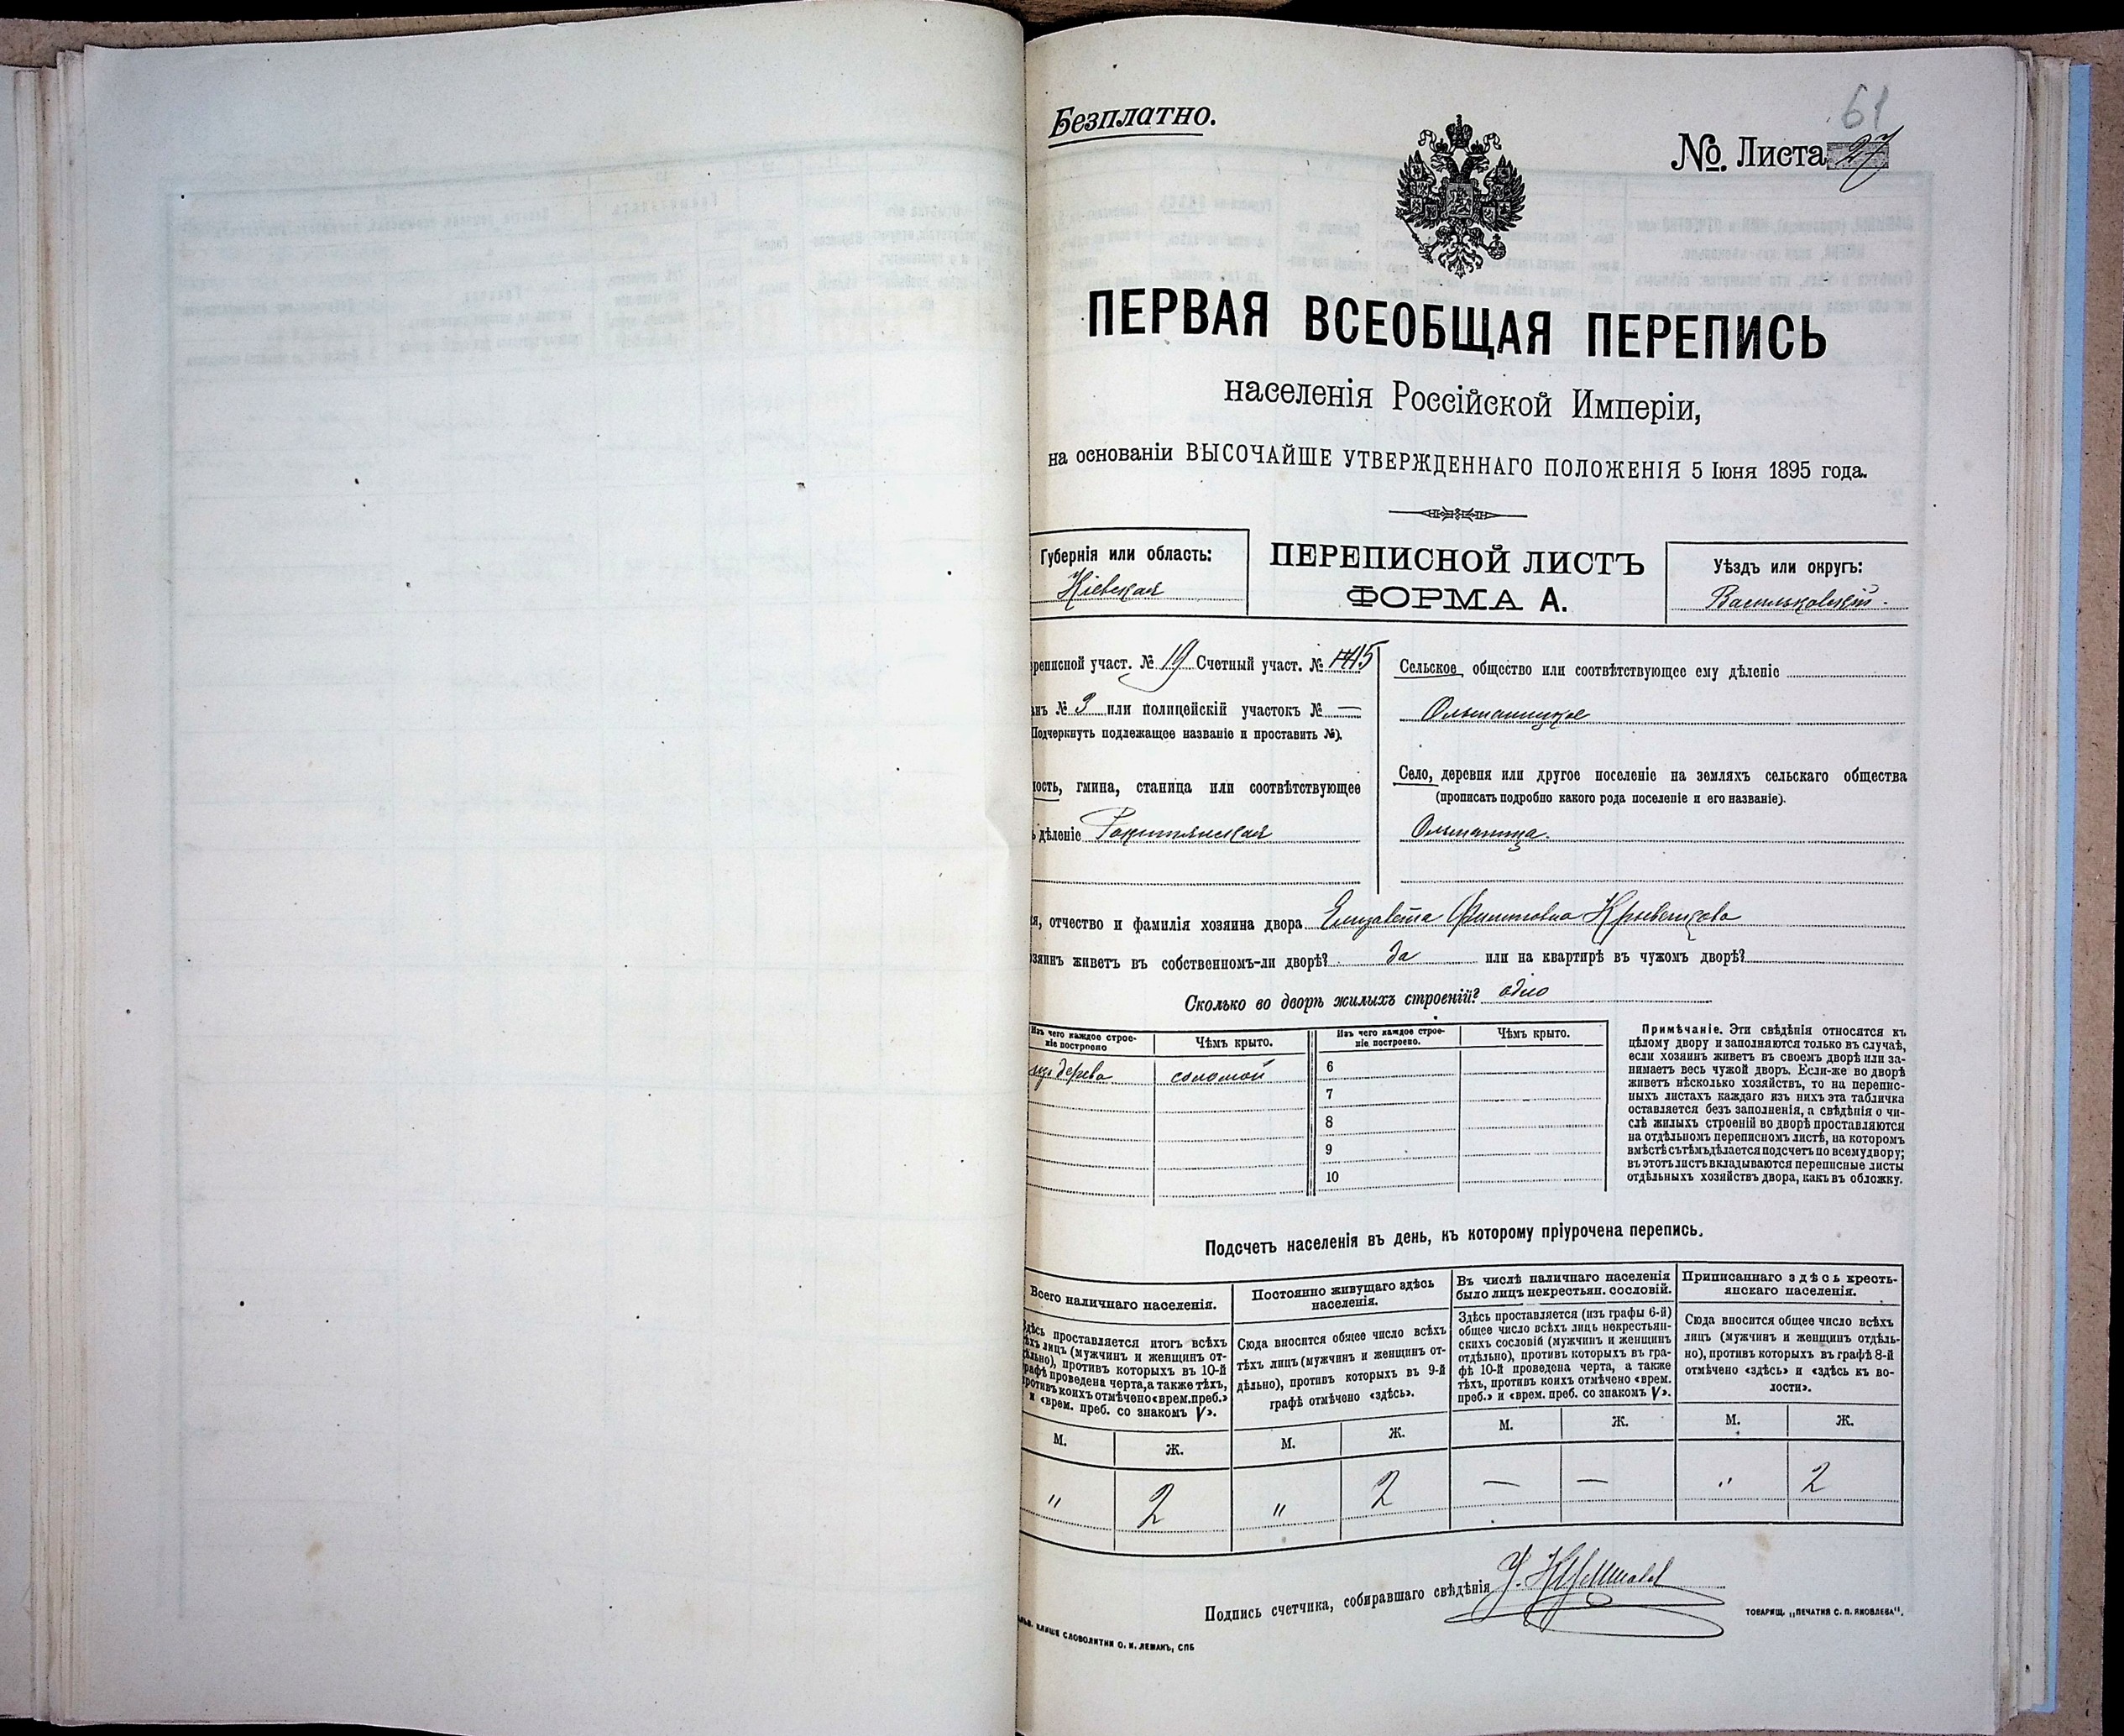 61
Безплатно.
№. Листа 27
ПЕРВАЯ ВСЕОБЩАЯ ПЕРЕПИСЬ
населенія Россійской Имперіи,
на основаніи ВЫСОЧАЙШЕ УТВЕРЖДЕННАГО ПОЛОЖЕНІЯ 5 Іюня 1895 года.
Губернія или область:
Кіевская
ПЕРЕПИСНОЙ ЛИСТЪ
ФОРМА А.
Уѣздъ или округъ:
Васильковскій.
реписной участ. № 19 Счетный участ. №
нъ № 3 или полицейскій участокъ № —
Подчеркнуть подлежащее названіе и проставить №).
ость, гмина, станица или соотвѣтствующее
дѣленіе Рокитянская
Сельское общество или соотвѣтствующее ему дѣленіе
Ольшаницкое
Село, деревня или другое поселеніе на земляхъ сельскаго общества
(прописать подробно какого рода поселеніе и его названіе).
Ольшаница.
я, отчество и фамилія хозяина двора Елизавета Филиповна
зяинъ живетъ въ собственномъ-ли дворѣ? да или на квартирѣ въ чужомъ дворѣ?
Сколько во дворѣ жилыхъ строеній? одно
Изъ чего каждое строе-
ніе построено
Чѣмъ крыто.
Изъ чего каждое строе-
ніе построено.
Чѣмъ крыто.
изъ дерева соломой
6
7
8
9
10
Примѣчаніе. Эти свѣдѣнія относятся къ
цѣлому двору и заполняются только въ случаѣ,
если хозяинъ живетъ въ своемъ дворѣ или за-
нимаетъ весь чужой дворъ. Если-же во дворѣ
живетъ нѣсколько хозяйствъ, то на перепис-
ныхъ листахъ каждаго изъ нихъ эта табличка
оставляется безъ заполненія, а свѣдѣнія о чи-
слѣ жилыхъ строеній во дворѣ проставляются
на отдѣльномъ переписномъ листѣ, на которомъ
вмѣстѣ съ тѣмъ дѣлается подсчетъ по всему двору;
въ этотъ листъ вкладываются переписные листы
отдѣльныхъ хозяйствъ двора, какъ въ обложку.
Подсчетъ населенія въ день, къ которому пріурочена перепись.
Всего наличнаго населенія.
Здѣсь проставляется итогъ всѣхъ
ѣхъ лицъ (мужчинъ и женщинъ от-
дѣльно), противъ которыхъ въ 10-й
графѣ проведена черта, а также тѣхъ,
противъ коихъ отмѣчено «врем. преб.»
и «врем. преб. со знакомъ V».
Постоянно живущаго здѣсь
населенія.
Сюда вносится общее число всѣхъ
тѣхъ лицъ (мужчинъ и женщинъ от-
дѣльно), противъ которыхъ въ 9-й
графѣ отмѣчено «здѣсь».
Въ числѣ наличнаго населенія
было лицъ некрестьян. сословій.
Здѣсь проставляется (изъ графы 6-й)
общее число всѣхъ лицъ некрестьян-
скихъ сословій (мужчинъ и женщинъ
отдѣльно), противъ которыхъ въ гра-
фѣ 10-й проведена черта, а также
тѣхъ, противъ коихъ отмѣчено «врем.
преб.» и «врем. преб. со знакомъ V».
Приписаннаго здѣсь кресть-
янскаго населенія.
Сюда вносится общее число всѣхъ
лицъ (мужчинъ и женщинъ отдѣль-
но), противъ которыхъ въ графѣ 8-й
отмѣчено «здѣсь» и «здѣсь къ во-
лости».
М. Ж. М. Ж. М. Ж. М. Ж.
" 2 " 2 — — " 2
Подпись счетчика, собиравшаго свѣдѣнія
КЛИШЕ СЛОВОЛИТНИ О. И. ЛЕМАНЪ, СПБ
ТОВАРИЩ. „ПЕЧАТНЯ С. П. ЯКОВЛЕВА".